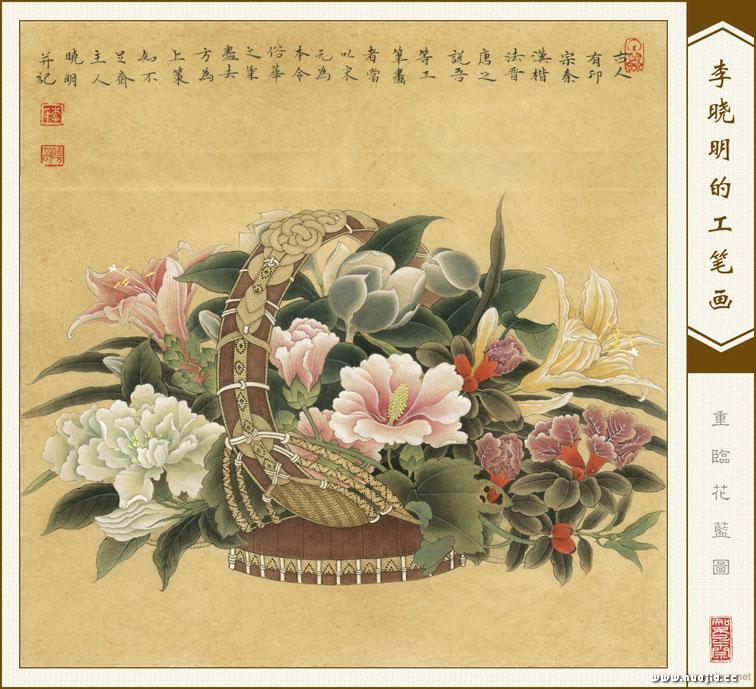 古人
有印
宗秦
漢楷
法晋
唐之
説吾
等工
筆畫
者當
以宋
元為
本令
俗華
之筆
盡去
方為
上策
知不
足齋
主人
曉明
并記
李晓明的工笔画
重臨花藍圖
www.huajia.cc